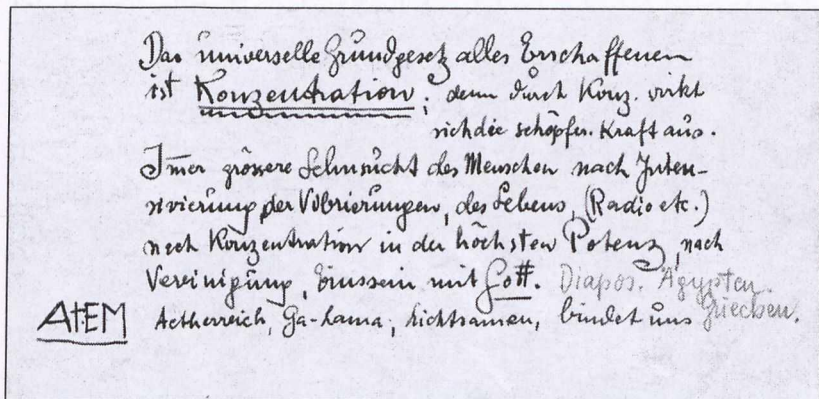 Das universelle Grundgesetz alles Erschaffenen
ist Konzentration; denn durch Konz. wirkt
sich die schöpfer. Kraft aus.
Im̄er grössere Sehnsucht des Menschen nach Inten-
sivierung der Vibrierungen, des Lebens, (Radio etc.)
nach Konzentration in der höchsten Potenz, nach
Vereinigung, Einssein mit Gott. Diapos. Ägypten.
Griechen.
ATEM Aetherreich, Ga-Lama, Lichtsamen, bindet uns